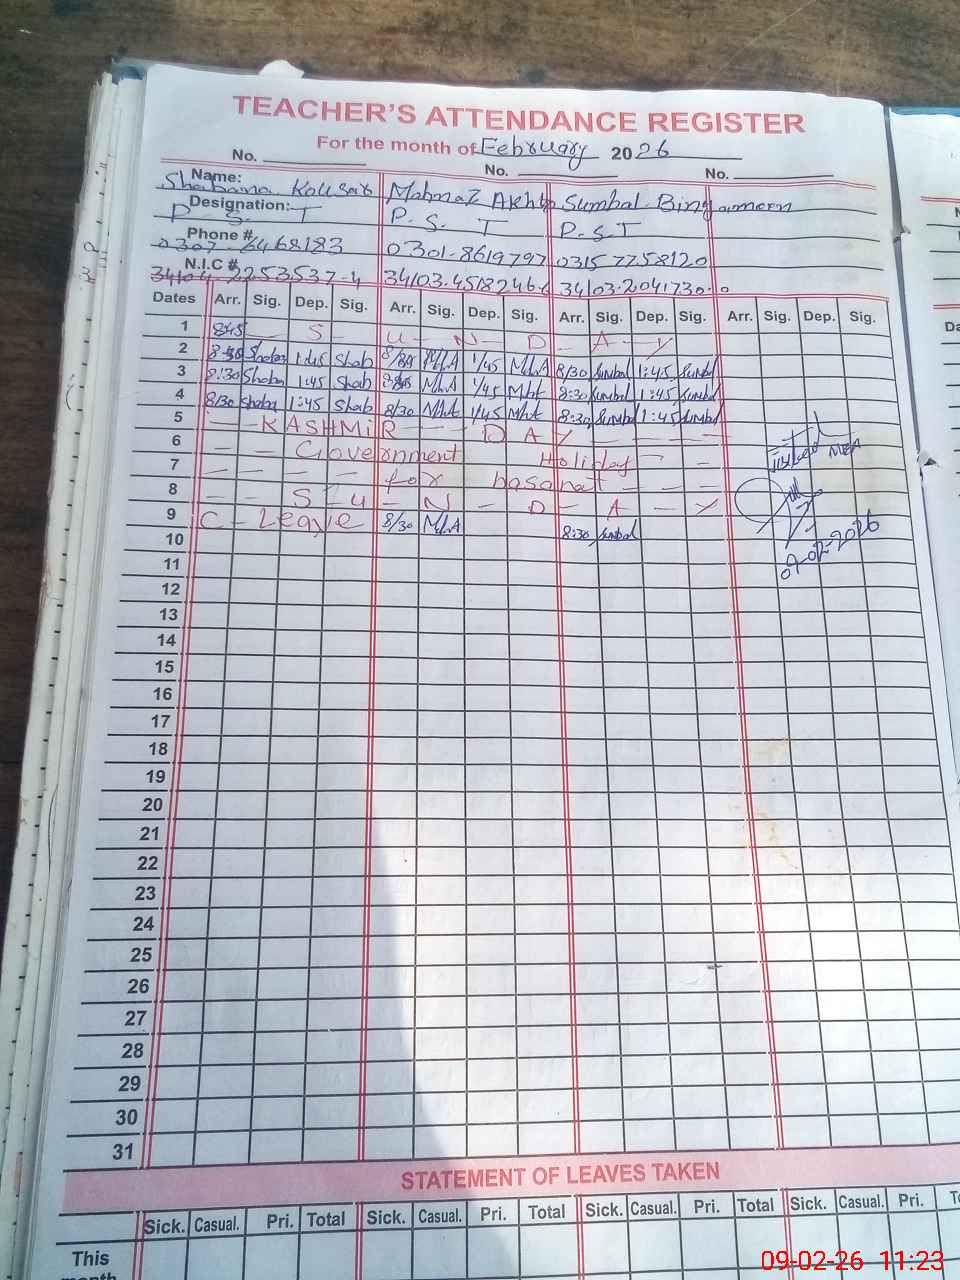 TEACHER'S ATTENDANCE REGISTER
For the month of February 2026
No. No. No.
Name: Shabana Kousar Mahnaz Akhtr Sumbal Bing
Designation: P. S. T P. S. T P.S.T
Phone # 0307-6468183 0301-8619797 0315 7758120
N.I.C # 34104-2253537-4 34103-4518246-6 34103-2041730-0
Dates Arr. Sig. Dep. Sig. Arr. Sig. Dep. Sig. Arr. Sig. Dep. Sig. Arr. Sig. Dep. Sig.
1 845 S U N D A Y
2 8:30 Shaba 1:45 Shab 8/30 M.A 1/45 M.A 8/30 Sumbal 1:45 Sumbal
3 8:30 Shaba 1:45 Shab M.A 1/45 Mht 8:30 Sumbal 1:45 Sumbal
4 8/30 Shaba 1:45 Shab 8/30 Mht 1/45 Mht 8:30 Sumbal 1:45 Sumbal
5 KASHMiR DAY
6 Government Holiday
7 for basanat
8 S U N D A Y
9 C - Leave 8/30 M.A 8:30 Sumbal
10
MEA
09-02-2026
11
12
13
14
15
16
17
18
19
20
21
22
23
24
25
26
27
28
29
30
31
STATEMENT OF LEAVES TAKEN
Sick. Casual. Pri. Total Sick. Casual. Pri. Total Sick. Casual. Pri. Total Sick. Casual. Pri.
This
month
09-02-26 11:23